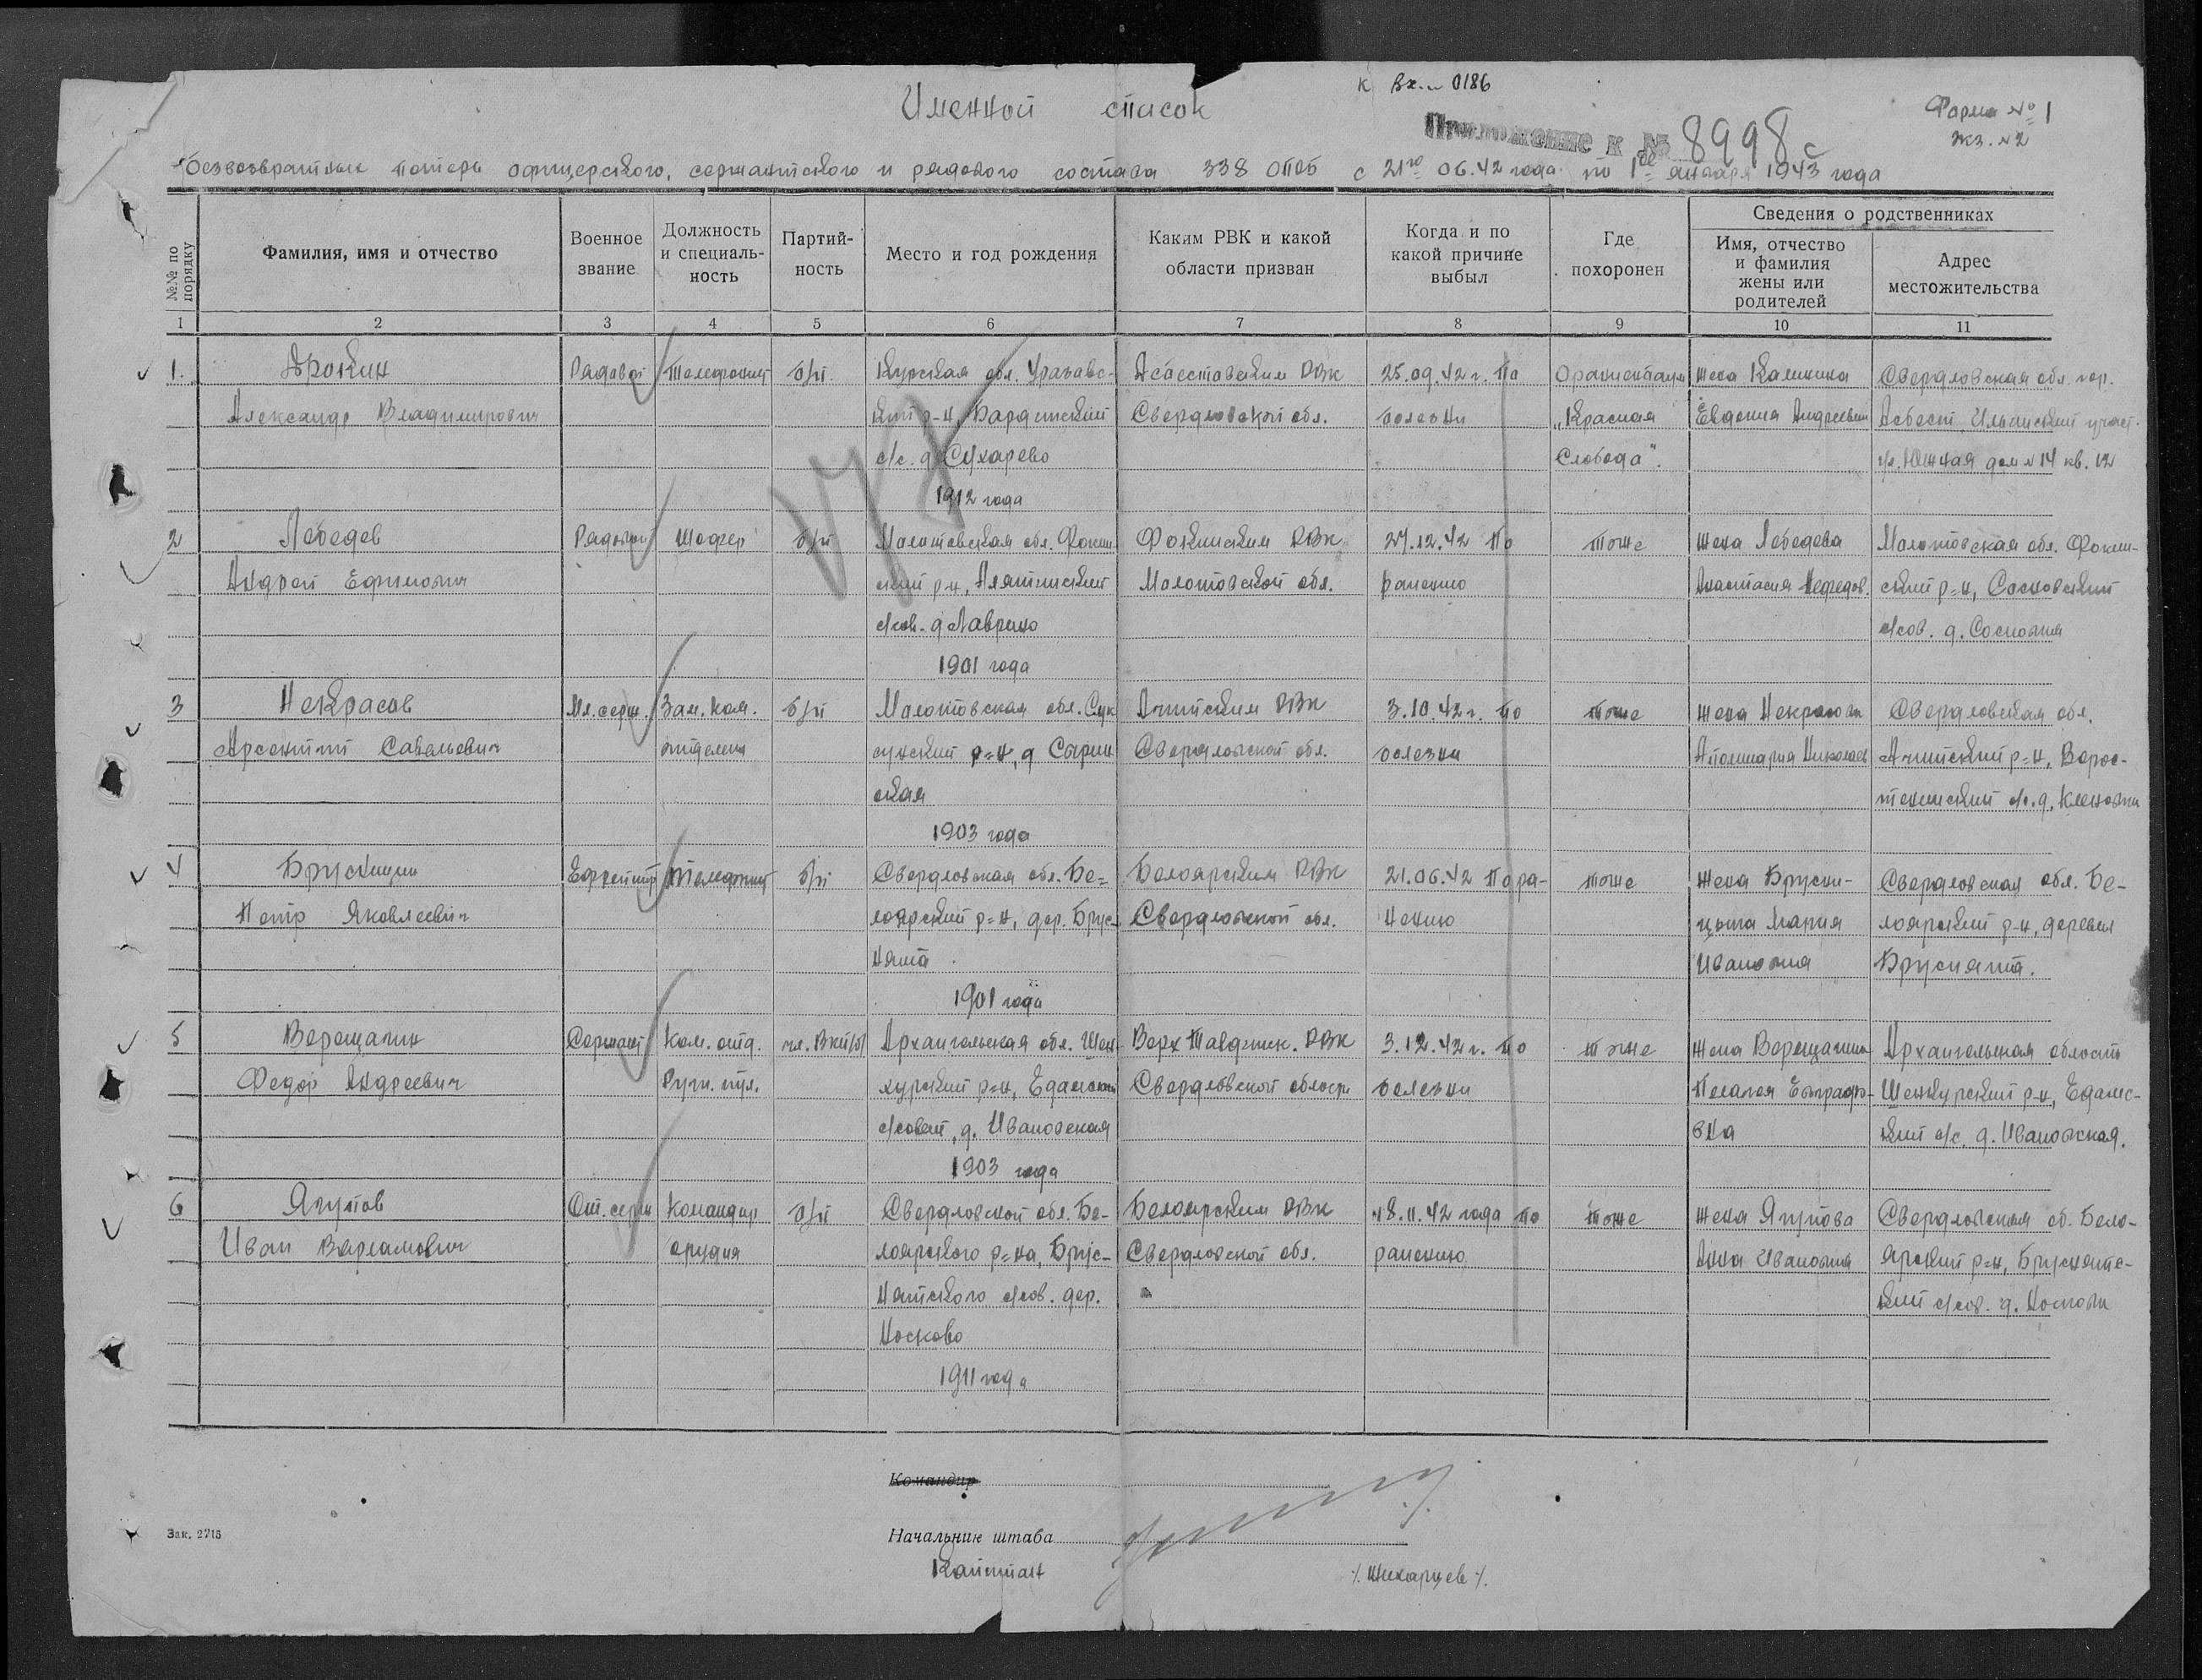 к Вх.№ 0186
Именной список
Приложение к № 8998с
Форма № 1
экз. №2
безвозвратных потерь офицерского, сержантского и рядового состава 338 ОПСБ с 21го 06.42 года по 1ое января 1943 года
№№ по порядку
Фамилия, имя и отчество
Военное звание
Должность и специаль-ность
Партий-ность
Место и год рождения
Каким РВК и какой области призван
Когда и по какой причине выбыл
Где похоронен
Сведения о родственниках
Имя, отчество и фамилия жены или родителей
Адрес местожительства
1 2 3 4 5 6 7 8 9 10 11
1. Рядовой Телефонист б/п. Курская обл. Уразовс- Асбестовским РВК 25.09.42 г. По жена Калинина Свердловская обл. гор.
Александр Владимирович кий р-н, Свердловской обл. болезни „Красная Евдокия Андреевн Асбест,
с/с. д. Сухарево Слобода". ул. Южная дом №14 кв. 12
1912 года
2 Лебедев Рядовой Шофер б/п Молотовская обл. Фокин- Фокинским РВК 27.12.42 По тоже жена Лебедева Молотовская обл. Фокин-
Андрей Ефимович ский р-н, Аляшинский Молотовской обл. ранению Анастасия Нефедов. ский р-н, Сосновский
с/сов. д. Лаврино с/сов. д.
1901 года
3 Некрасов Мл. серж. Зам. Ком. б/п Молотовская обл. Сук- Ачитским РВК 3.10.42 г. По тоже жена Некрасова Свердловская обл.
Арсентий Савельевич отделен сунский р-н, д Сарин Свердловской обл. болезни Аполинария Николаев Ачитский р-н,
ская с/с. д.
1903 года
4 Брусницин Ефрейтор Телефонист б/п Свердловская обл. Бе- Белоярским РВК 21.06.42 По ра- тоже жена Брусни- Свердловская обл. Бе-
Петр Яковлевич лоярский р-н, дер. Брус- Свердловской обл. нению цына Мария лоярский р-н, деревня
нята Ивановна Бруснята.
1901 года
5 Верещагин Сержант Ком. отд. чл. ВКП/б/ Архангельская обл. Шен- Верх Тавдинск. РВК 3.12.42 г. По тоже жена Верещагина Архангельская область
Федор Андреевич Ручн. пул. курский р-н, Едемский Свердловской области болезни Пелагея Евграфо- Шенкурский р-н, Едемс-
с/совет, д. Ивановская вна кий с/с. д. Ивановская.
1903 года
6 Ягупов Ст. серж Командир б/п Свердловской обл. Бе- Белоярским РВК 18.11.42 года По тоже жена Ягупова Свердловская об. Бело-
Иван Варламович орудия лоярского р-на, Брус- Свердловской обл. ранению Анна Ивановна ярский р-н, Бруснятс-
нятского с/сов. дер. кий с/сов. д.
1911 года
Командир
Начальник штаба
Капитан
Зак. 2715